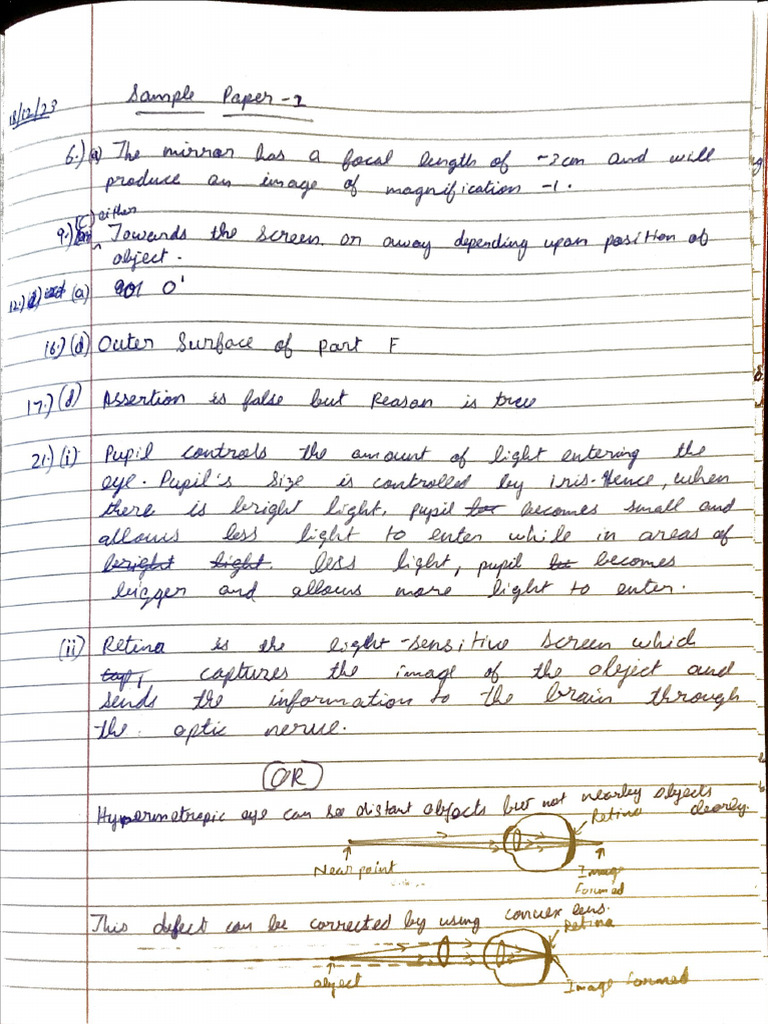 18/12/23
Sample Paper - 1
6.) (a) The mirror has a focal length of -2cm and will
produce an image of magnification -1.
9.) (C) either
Towards the screen or away depending upon position of
object.
12.) (a) 0'
16.) (d) Outer Surface of part F
17.) (d) Assertion is false but Reason is true
21.) (i) Pupil controls the amount of light entering the
eye. Pupil's size is controlled by iris. Hence, when
there is bright light, pupil becomes small and
allows less light to enter while in areas of
bright light. less light, pupil becomes
bigger and allows more light to enter.
(ii) Retina is the light-sensitive screen which
captures the image of the object and
sends the information to the brain through
the optic nerve.
OR
Hypermetropic eye can see distant objects but not nearby objects
clearly.
Retina
Near point
Image
formed
This defect can be corrected by using convex lens.
Retina
object
Image formed